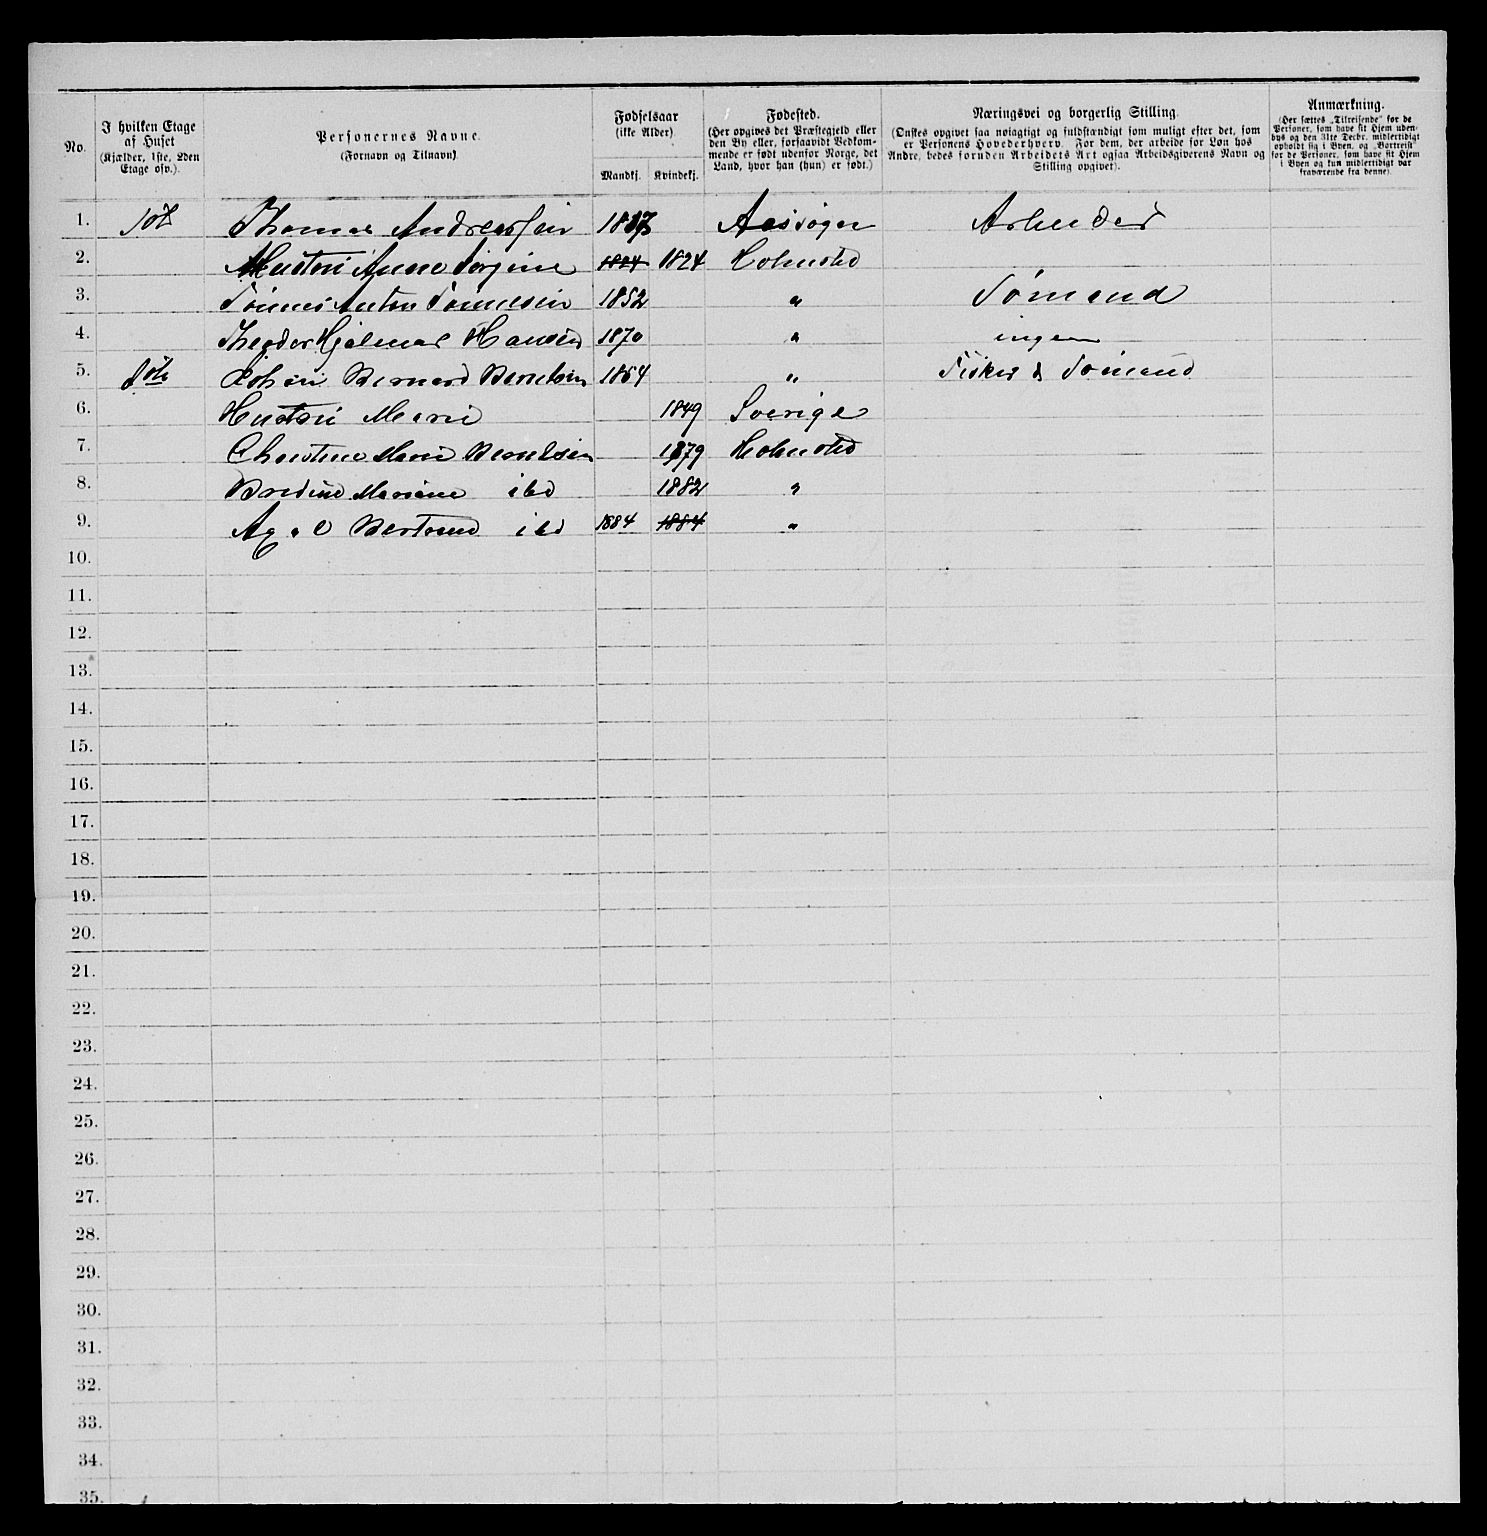 No.
I hvilken Etage af Huset (Kjælder, 1ste, 2den Etage osv.).
Personernes Navne. (Fornavn og Tilnavn)
Fødselsaar (ikke Alder)
Mandkj. Kvindekj.
Fødested. (Her opgives det Præstegjeld eller den By eller, forsaavidt Vedkommende er født udenfor Norge, det Land, hvor han (hun) er født.)
Næringsvei og borgerlig Stilling. (Ønskes opgivet saa nøiagtigt og fuldstændigt som muligt efter det, som er Personens Hovederhverv. For dem, der arbeide for Løn hos Andre, bedes foruden Arbeidets Art ogsaa Arbeidsgiverens Navn og Stilling opgivet).
Anmærkning. (Her sættes „Tilreisende“ for de Personer, som have sit Hjem udenbys og den 31te Decbr. midlertidigt opholdt sig i Byen, og „Bortreist“ for de Personer, som have sit Hjem i Byen og kun midlertidigt var fraværende fra denne).
1. 1st Thomas Andersen Arbeider
2. Hustru Anne Jørgine 1824 1824 Holmsbo
3. Anton 1852 " Sømand
4. Theodor Hjalmar Hansen 1870 " ingen
5. Johan Bernard Berntsen " Fisker & Sømand
6. Hustru Marie 1849 Sverige
7. Christine Marie Berntsen 1879 Holmsbo
8. 1882 "
9. 1884 1884 "
10.
11.
12.
13.
14.
15.
16.
17.
18.
19.
20.
21.
22.
23.
24.
25.
26.
27.
28.
29.
30.
31.
32.
33.
34.
35.